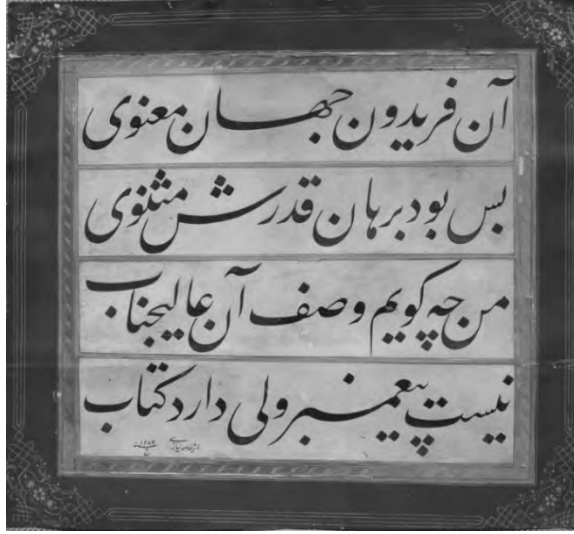 آن فریدون جهان معنوی
بس بود برهان قدرش مثنوی
من چه کویم وصف آن عالیجناب
نیست پیغمبر ولی دارد کتاب